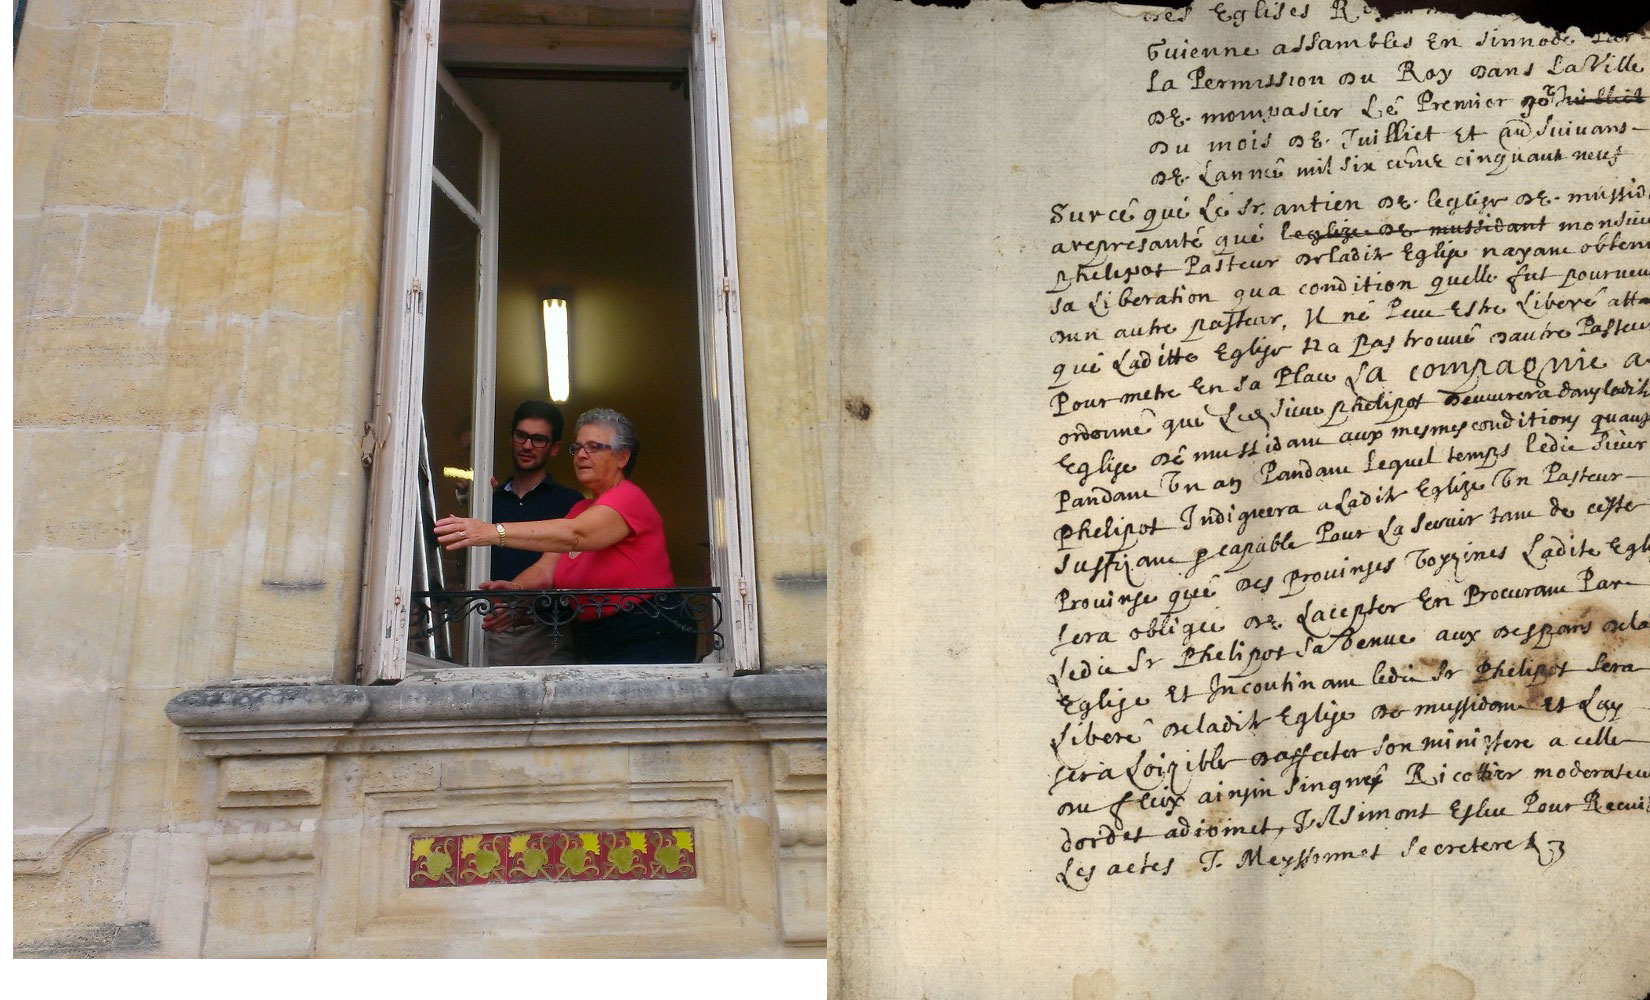 des Eglises
Guienne assambles En sinnode Par
La Permission du Roy dans La Ville
de mompasier Le Premier
du mois de Juilliet Et suivans
de Lanneê mil six cens cinquant neuf
Surcê quê Le Sr. antien de leglise de
arepresantê quê leglize de mussidant
phelipot Pasteur deladite Eglise nayant obtenu
sa Liberation qua condition quelle fut pourveue
dun autre pasteur, Il nê Peut Estre Liberê
quê Laditte Eglise Na pas trouvê dautre Pasteur
Pour metre En sa Place La compagnie a
ordonnê quê Led sieur phelipot demeurera dans ladite
Eglise dê mussidant aux mesmes conditions
Pandant Un an Pandant Lequel temps ledit sieur
phelipot Indiquera a Ladite Eglize Un Pasteur
Suffizant capable Pour La servir tant de ceste
Provinse quê des provinses voyzines Ladite
sera obligee de Lacepter En Procurant Par
Ledit Sr Phelipot sa venue aux despans dela
Eglise Et Incontinant ledit Sr Phelipot sera
Liberê deladite Eglise de mussidant Et Luy
sera Loizible daffecter son ministere a celle
du fleix ainsin Singnes Ricottier moderateur
dordes adioinct, Simont Esleu Pour
Les actes J. Meyssonnet Secretere